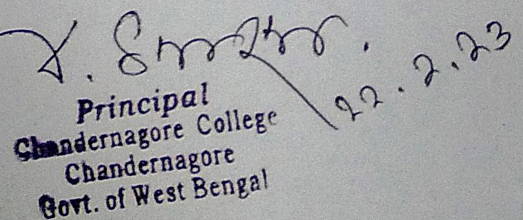 22.2.23
Principal
Chandernagore College
Chandernagore
Govt. of West Bengal